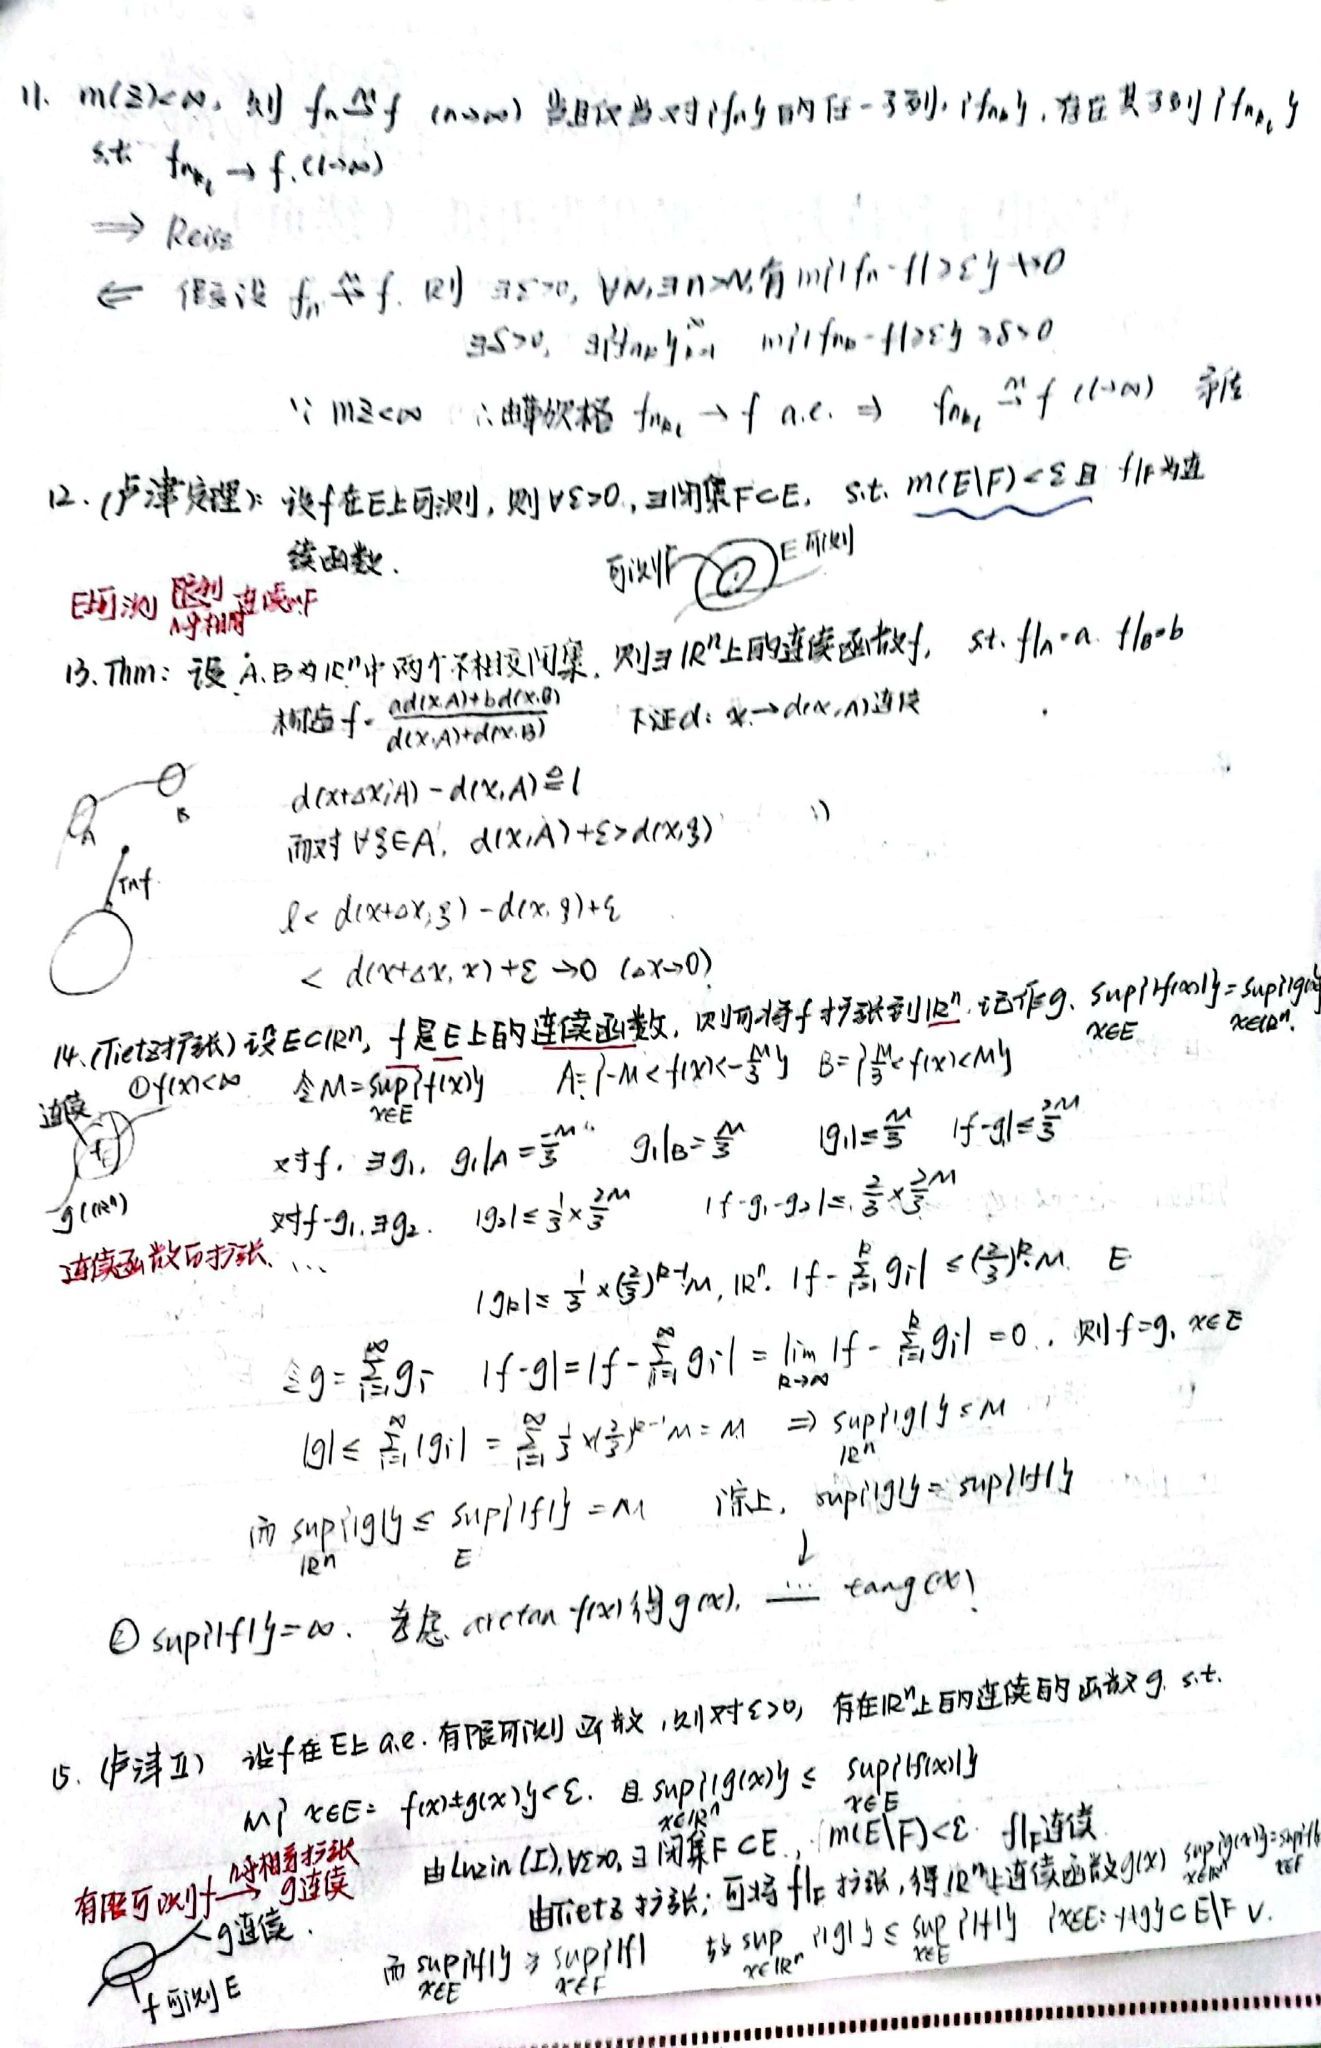 11. m(E)<∞, 则 fn →m f (n→∞) 当且仅当对{fn}的任一子列{fnk}, 存在其子列{fnkl}
s.t. fnkl → f. (l→∞)
⇒ Reisz
⇐ 假设 fn ↛m f. 则 ∃ε>0, ∀N, ∃n>N, 有 m{|fn-f|>ε} ↛0
∃δ>0, ∃{fnk}∞k=1 m{|fnk-f|>ε} ≥δ>0
∵ mE<∞ ∴由 fnkl → f a.e. ⇒ fnkl →m f (l→∞) 矛盾
12. (卢津定理): 设f在E上可测, 则∀ε>0, ∃闭集F⊂E, s.t. m(E\F)<ε 且 f|F为连
续函数.
可测F E可测
E上可测 限制 连续F
13. Thm: 设A.B为ℝⁿ中两个不相交闭集, 则∃ℝⁿ上的连续函数f, s.t. f|A=a. f|B=b
构造 f = (ad(x.A)+bd(x.B))/(d(x.A)+d(x.B)) 下证d: x→d(x,A)连续
A B
d(x+Δx,A) - d(x,A) ≜ l
而对∀ξ∈A, d(x,A)+ε>d(x,ξ)
inf.
l < d(x+Δx,ξ) - d(x,ξ)+ε
< d(x+Δx, x)+ε →0 (Δx→0)
14. (Tietz扩张) 设E⊂ℝⁿ, f是E上的连续函数, 则可将f扩张到ℝⁿ. 记作g. sup{|f(x)|} = sup{|g(x)|}
x∈E x∈ℝⁿ.
① f(x)<∞ 令M=sup{f(x)} A={-M<f(x)<-M/3} B={M/3<f(x)<M}
x∈E
连续
对f. ∃g₁, g₁|A=-M/3 g₁|B=M/3 |g₁|≤M/3 |f-g₁|≤2M/3
g(ℝⁿ)
对f-g₁, ∃g₂. |g₂|≤1/3×2M/3 |f-g₁-g₂|≤ 2/3×2M/3
连续函数的扩张. ...
|gk|≤ 1/3×(2/3)^(k-1)M, ℝⁿ. |f-Σ(i=1,k) gi| ≤(2/3)^k.M. E
令g=Σ(i=1,∞) gi |f-g|=|f-Σ(i=1,∞) gi| = lim(k→∞) |f-Σ(i=1,k) gi| =0., 则f=g, x∈E
|g|≤ Σ(i=1,∞)|gi| = Σ(i=1,∞) 1/3×(2/3)^(k-1)M=M ⇒ sup{|g|}≤M
ℝⁿ
而 sup{|g|} ≤ sup{|f|} =M 综上, sup{|g|} = sup{|f|}
ℝⁿ E
② sup{|f|}=∞. 考虑 arctan f(x)得g(x), ... tang(x)
15. (卢津Ⅱ) 设f在E上a.e.有限可测函数, 则对ε>0, 存在ℝⁿ上的连续的函数g. s.t.
m{x∈E: f(x)≠g(x)}<ε. 且 sup{|g(x)|} ≤ sup{|f(x)|}
x∈ℝⁿ x∈E
由Luzin(I), ∀ε>0, ∃闭集F⊂E, m(E\F)<ε. f|F连续
有限可测f → g连续
由Tietz扩张; 可将f|F扩张, 得ℝⁿ上连续函数g(x)
g连续.
而 sup{|f|} ≥ sup{|f|} 故 sup{|g|} ≤ sup{|f|} {x∈E: f≠g}⊂E\F ∨.
x∈E x∈F x∈ℝⁿ x∈E
f可测E